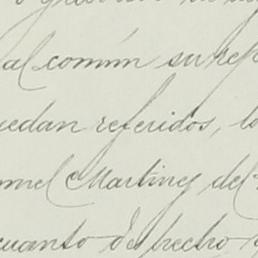 al común su rep
uedan referidos, lo
nuel Martinez del
cuanto de hecho y